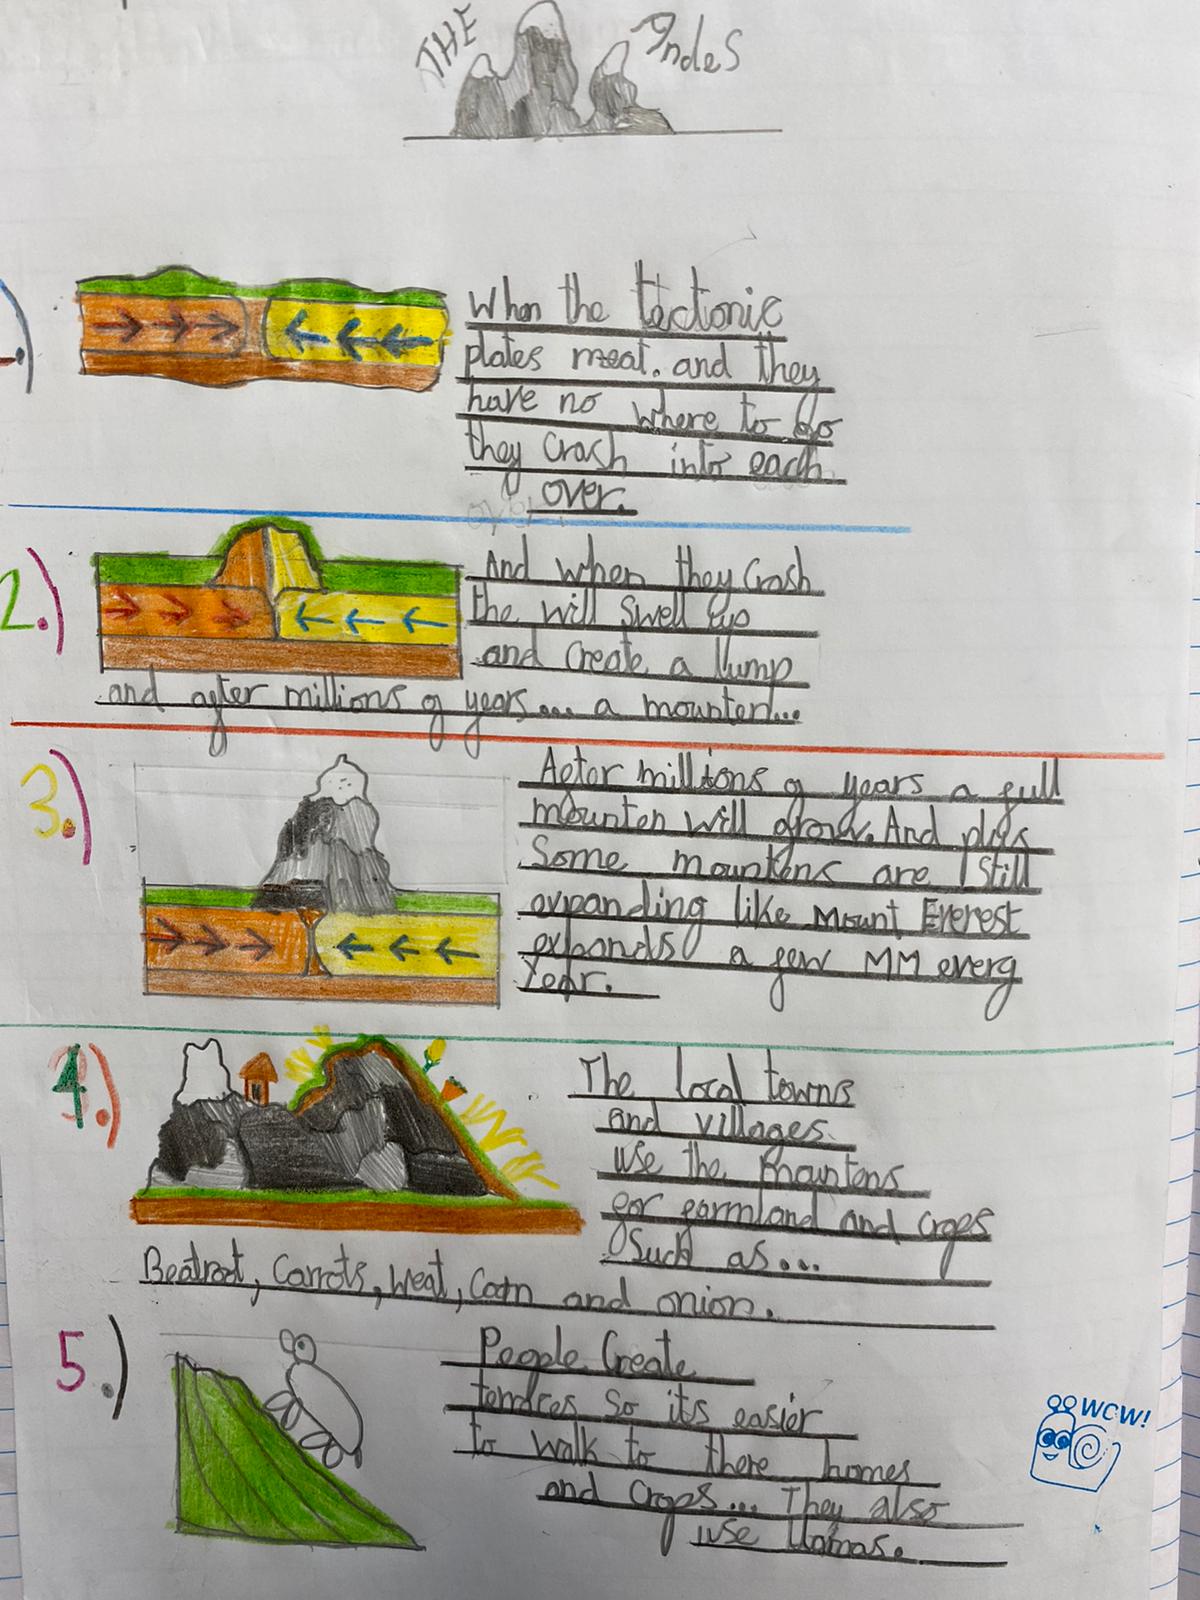 THE Andes
1.)
When the tectonic
plates meat. and they
have no where to go
they crash into each
over.
2.)
And when they Crash
the will swell up
and create a lump
and after millions of years... a mounten...
3.)
After millions of years a full
mounten will grow. And plus
Some mountens are Still
expanding like Mount Everest
expands a few MM every
Year.
4.)
The local towns
and villages
use the mountens
for farmland and crops
Such as...
Beatroot, Carrots, Weat, Corn and onion.
5.)
People Create
so its easier
to walk to there homes
and crops... They also
use llamas.
WOW!